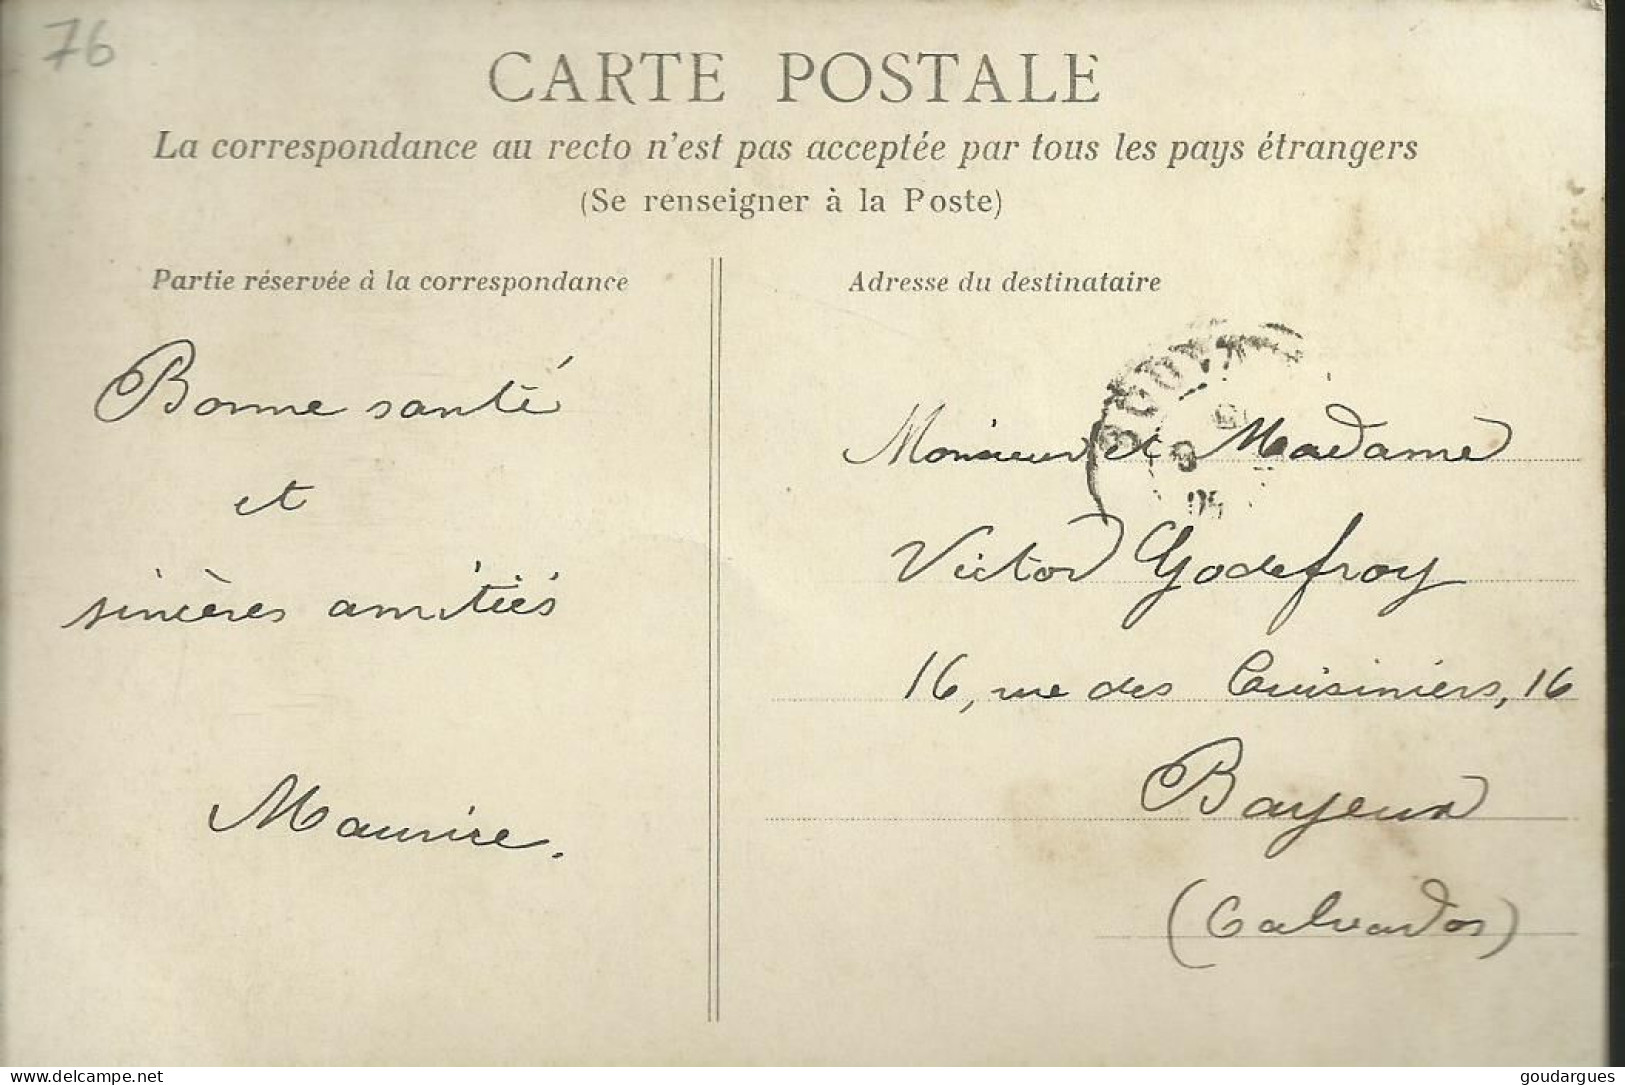 76
CARTE POSTALE
La correspondance au recto n'est pas acceptée par tous les pays étrangers
(Se renseigner à la Poste)
Partie réservée à la correspondance
Bonne santé
et
sincères amitiés
Maurice.
Adresse du destinataire
Monsieur et Madame
Victor Godefroy
16, rue des Cuisiniers, 16
Bayeux
(Calvados)
www.delcampe.net
goudargues